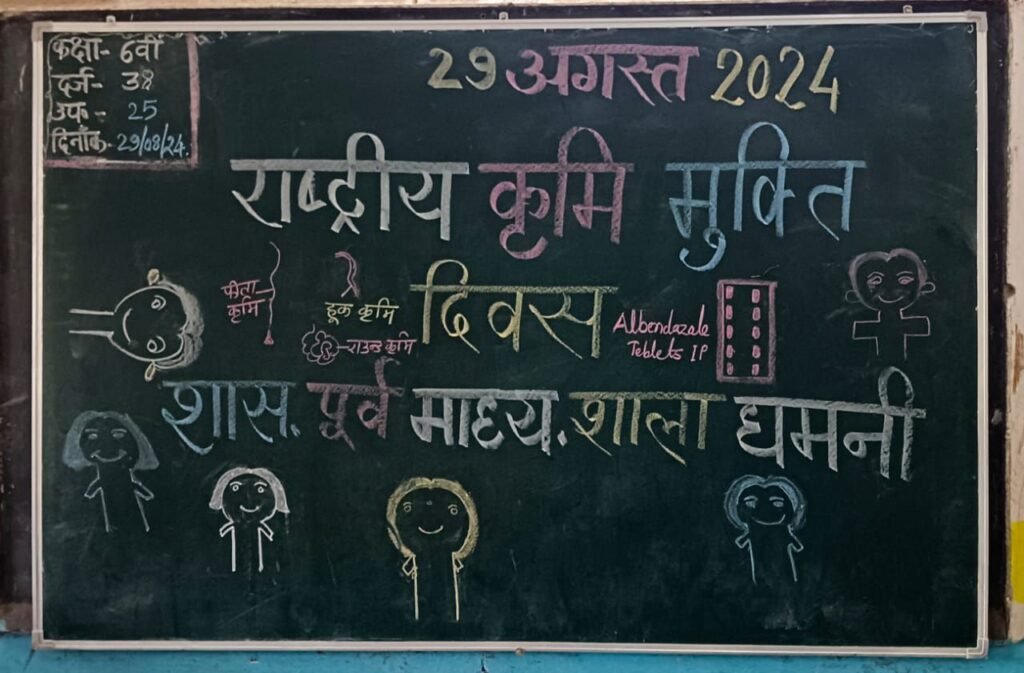 कक्षा- 6वीं
दर्ज- 38
उप.- 25
दिनाँक- 29/08/24.
29 अगस्त 2024
राष्ट्रीय कृमि मुक्ति
दिवस
फीता कृमि
हूक कृमि
राउन्ड कृमि
Albendazale
Teblets IP
शास. पूर्व माध्य. शाला धमनी